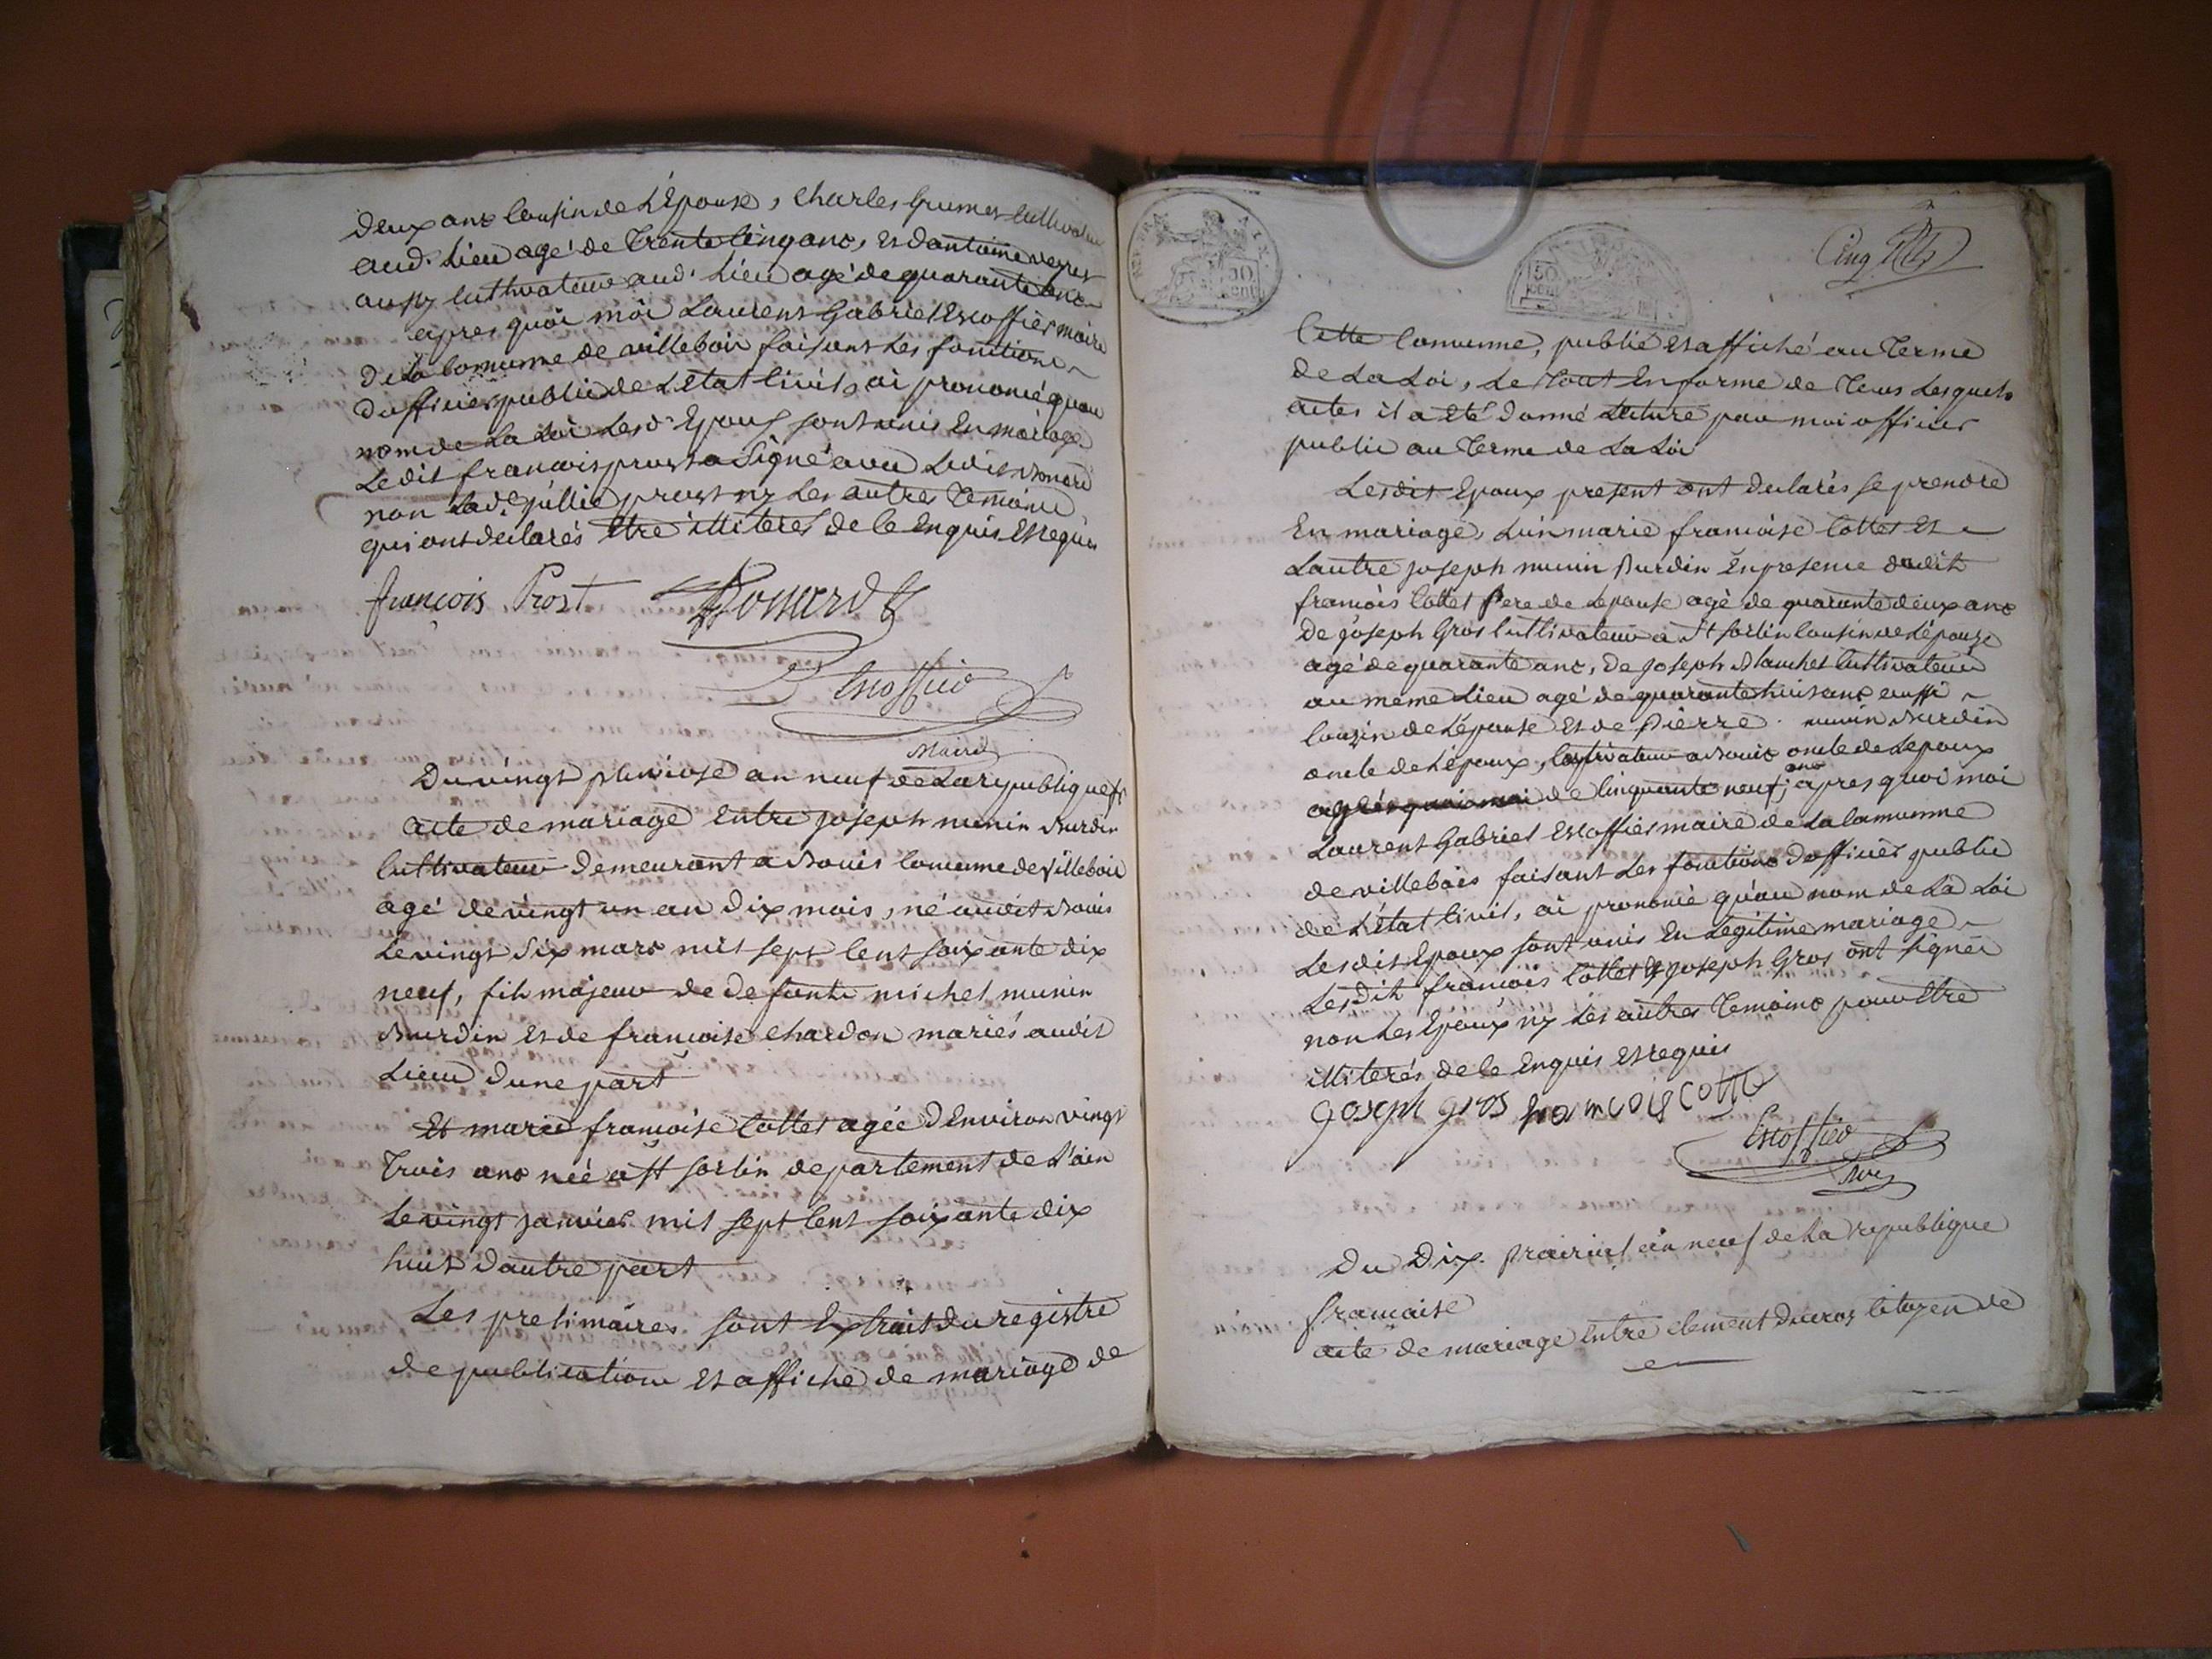 deux ans Cousin de L'Epouse, Charles Grumet Cultivateur
aud. Lieu agé de Trente Cinq ans, et d'antoine veyret
aussy Cultivateur aud. Lieu agé de quarante ans
apres quoi moi Laurent Gabriel Escoffier maire
De la Comune de villebois faisant Les fonctions
d'officier public de L'Etat Civil, ai prononcé qu'au
nom de La Loi Lesd. Epoux sont unis En mariage
Ledit francois prost a Signé avec Ledit Bonard
non lad.e jullie prost ny Les autres Temoins
qui ont declarés Etre illiterés de ce Enquis Et requis
françois Prost Bonard
Escoffier
Maire
Du vingt pluviose an neuf de La republique fr
acte de mariage Entre joseph munin Burdin
Cultivateur Demeurant a Bouis Comune de villebois
agé de vingt un an Dix mois, né audit Bouis
Le vingt Six mars mil sept Cent soixante dix
neuf, fils majeur de defunts michel munin
Burdin et de francoise Chardon mariés audit
Lieu d'une part
Et marie francoise Cottet agée d'Environ vingt
Trois ans née a St sorlin departement de L'ain
Le vingt janvier mil sept Cent soixante dix
huit d'autre part
Les preliminaires sont Extrait du registre
de publication et affiche de mariage de
REP. FRA. 50 CENT
50 CENT
Cinq
Cette Comunne, publié et affiché au Terme
de La Loi, Le Tout En forme de Tous Lesquels
actes il a Eté donné Lecture par moi officier
public au Terme de La Loi
Lesdit Epoux present ont declarés se prendre
En mariage, L'un marie francoise Cottet Et
L'autre joseph munin Burdin En presence dudit
francois Cottet Pere de L'epouse agé de quarante deux ans
de joseph Gros Cultivateur a St sorlin Cousin de L'épouse
agé de quarante ans, de joseph Blanchet Cultivateur
au même Lieu agé de quarante huit ans aussi
Cousin de L'épouse Et de Pierre munin Burdin
oncle de L'époux, Cultivateur a Bouis oncle de L'epoux
après quoi moi de Cinquante neuf ans, apres quoi moi
Laurent Gabriel Escoffier maire de La Comunne
de villebois faisant Les fonctions d'officier public
de L'état Civil, ai prononcé qu'au nom de La Loi
Lesdit Epoux sont unis En Legitime mariage
Lesdit francois Cottet & joseph Gros ont signés
non Les Epoux ny Les autres Temoins pour Etre
illiterés de ce Enquis Et requis
joseph gros francois cotte
Escoffier
Du Dix prairial an neuf de La republique
francaise
acte de mariage Entre Clement Ducros Citoyen de